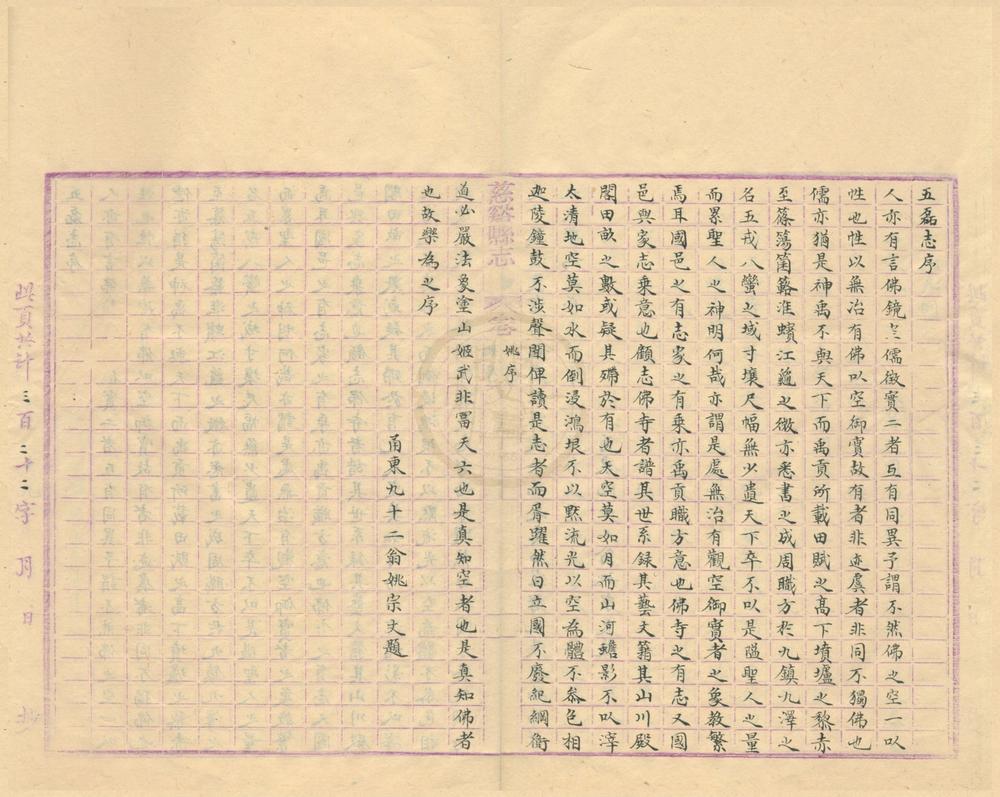 五磊志序
人亦有言佛鏡空儒徵實二者互有同異予謂不然佛之空一以
性也性以無冶有佛以空御實故有者非迹虞者非同不獨佛也
儒亦猶是神禹不與天下而禹貢所載田賦之高下墳壚之黎赤
至篠簜箘簵淮蠙江龜之微亦悉書之成周職方於九鎮九澤之
名五戎八蠻之域寸壤尺幅無少遺天下卒不以是隘聖人之量
而累聖人之神明何哉亦謂是處無治有觀空御實者之象教繁
焉耳國邑之有志家之有乘亦禹貢職方意也佛寺之有志又國
邑與家志乘意也顧志佛寺者譜其世系録其藝文籍其山川殿
閣田畝之數或疑其殢於有也天空莫如月而山河蟾影不以滓
太清地空莫如水而倒浸鴻垠不以黙流光以空為體不叅色相
迦陵鐘鼓不涉聲聞俾讀是志者而胥躍然曰立國不廢紀綱衛
慈谿縣志
卷
姚序
道必嚴法象塗山姬武非冨天六也是真知空者也是真知佛者
也故樂為之序
甬東九十二翁姚宗文題
此頁共計三百二十二字 月 日 抄